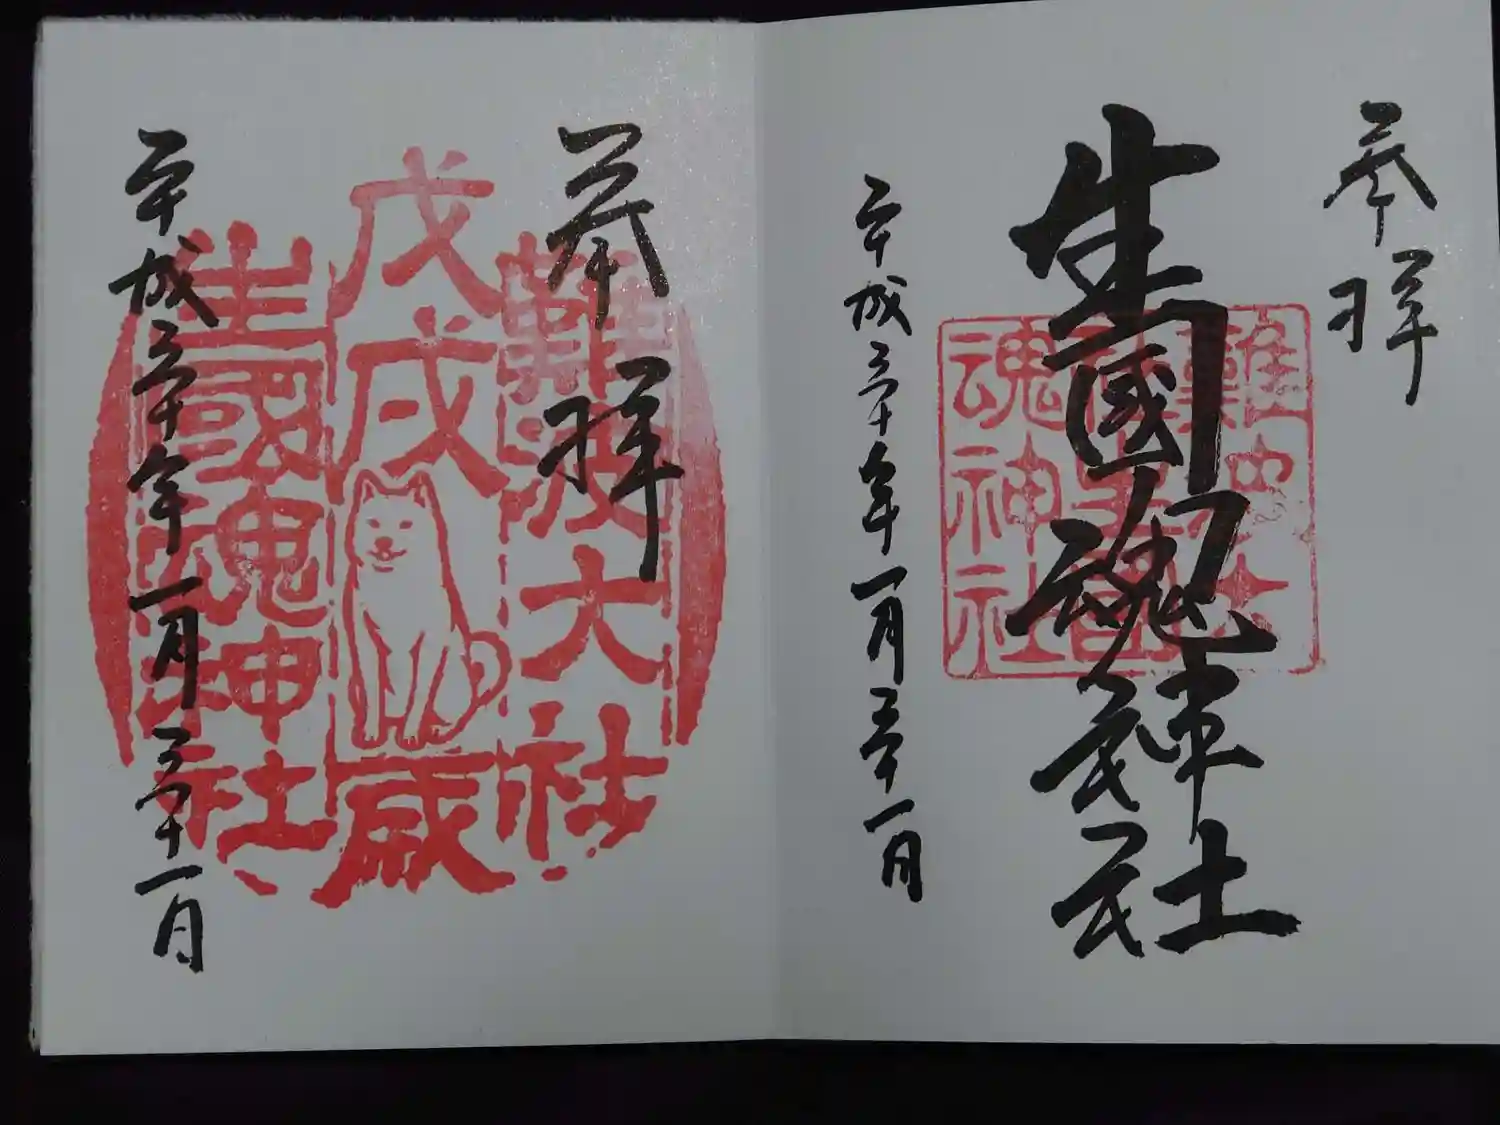 奉拝
生國魂神社
難波大
社生國
魂神社
平成三十年一月三十一日
奉拝
難波大社
戊戌歳
生國魂神社
平成三十年一月三十一日